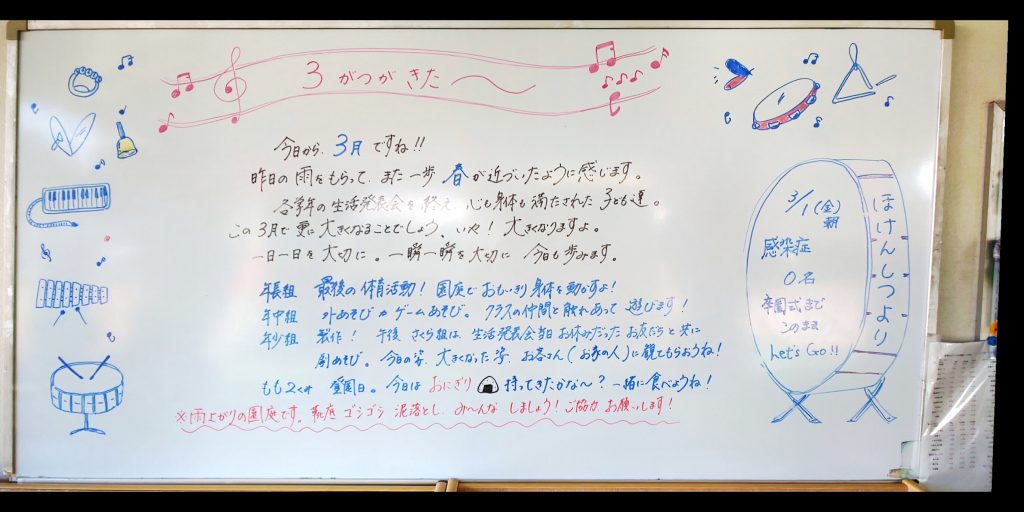 3がつがきた〜
今日から、3月ですね!!
昨日の雨をもらって、また一歩春が近づいたように感じます。
各学年の生活発表会を終え、心も身体も満たされた子ども達。
この3月で更に大きくなることでしょう、いや！大きくなりますよ。
一日一日を大切に。一瞬一瞬を大切に今日も歩みます。
年長組 最後の体育活動！園庭でおもいきり身体を動かすよ！
年中組 外あそびかゲームあそび。クラスの仲間と触れあって遊びます！
年少組 製作！午後さくら組は、生活発表会当日お休みだったお友だちと共に
劇あそび。今日の姿、大きくなった姿、お客さん(お家の人)に観てもらおうね！
もも2くみ 登園日。今日はおにぎり持ってきたかな〜？一緒に食べようね！
※雨上がりの園庭です。靴底ゴシゴシ泥落とし、み〜んなしましょう！ご協力お願いします！
ほけんしつより
3/1(金)
朝
感染症
0名
卒園式まで
このまま
Let's Go!!